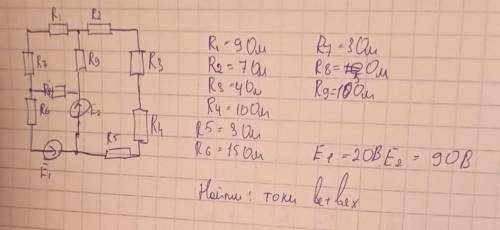 R1 R2
R7 R9 R3
R6 E2
R4
R5
E1
R1 = 9Ом
R2 = 7Ом
R3 = 4Ом
R4 = 10Ом
R5 = 3Ом
R6 = 15Ом
R7 = 3Ом
R8 = Ом
R9 = 10Ом
E1 = 20В E2 = 90В
Найти: токи